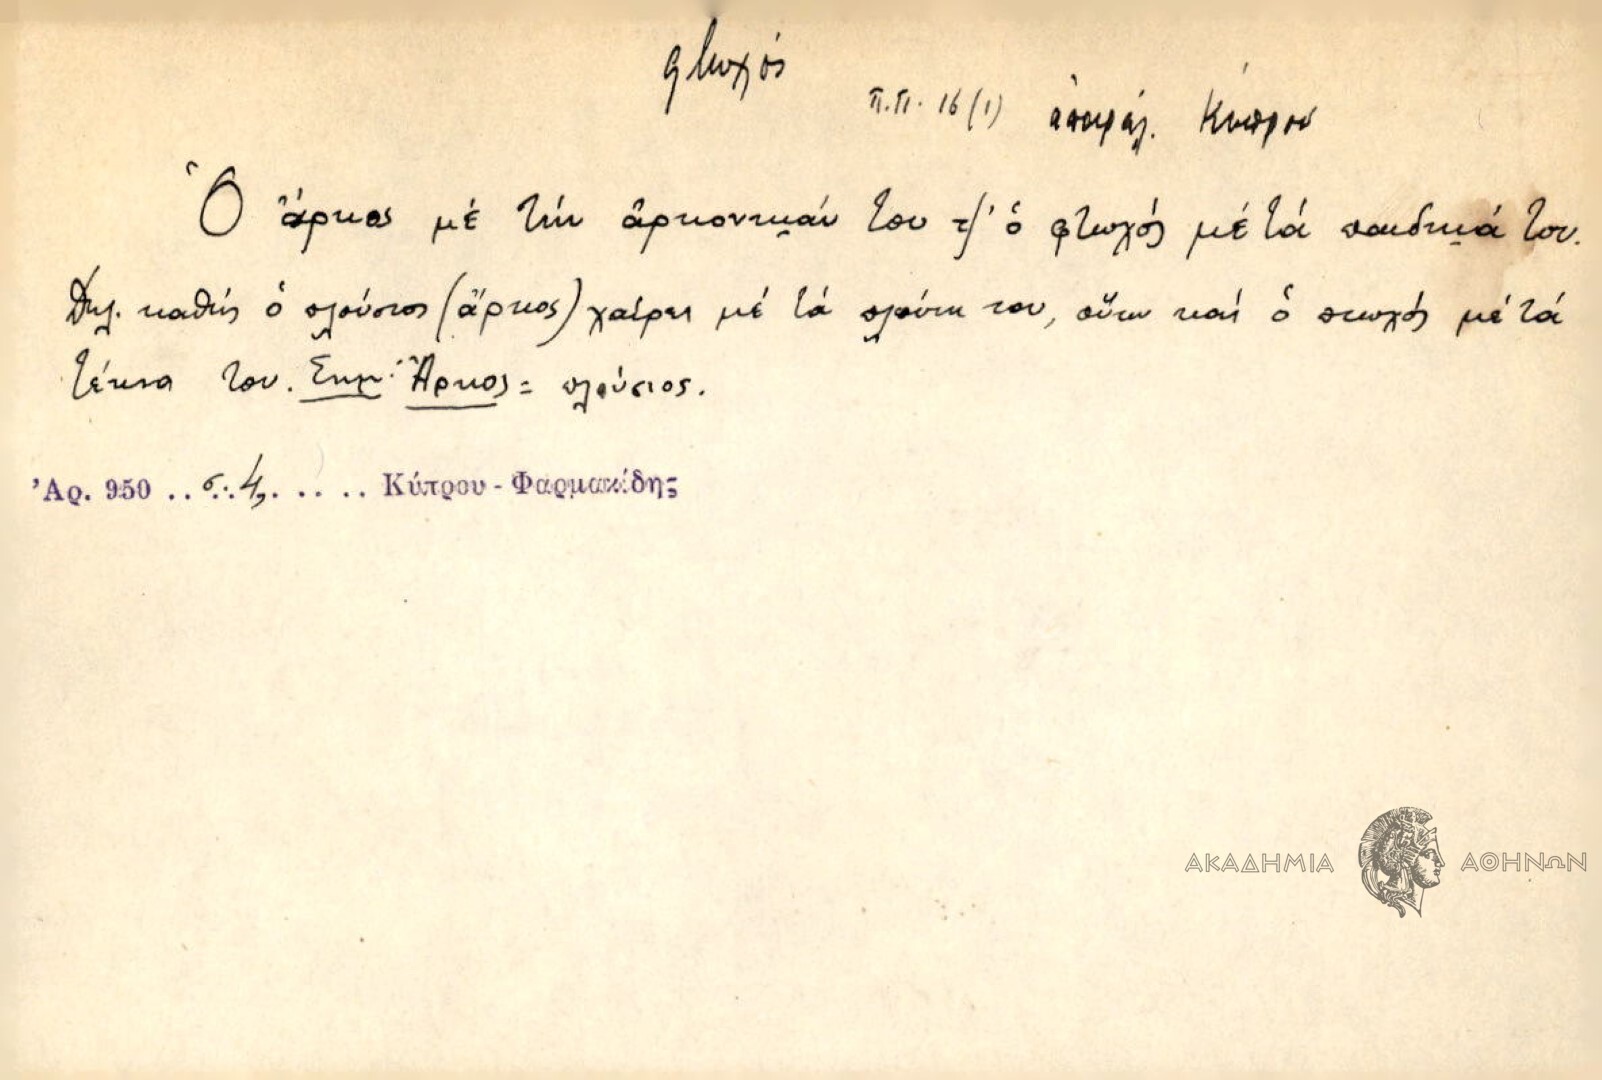 φτωχός
π.π. 16 (1) Κύπρου
Ὁ ἄρκος μέ τήν ἀρκοντικιάν του τζ' ὁ φτωχός μέ τά παιδκιά του.
Δηλ. καθώς ὁ πλούσιος (ἄρκος) χαίρει μέ τά πλούτη του, οὕτω καί ὁ πτωχός μέ τά
τέκνα του. Σημ: Ἄρκος = πλούσιος.
Ἀρ. 950 .. σ. 4, . . .. Κύπρου - Φαρμακίδης
ΑΚΑΔΗΜΙΑ ΑΘΗΝΩΝ